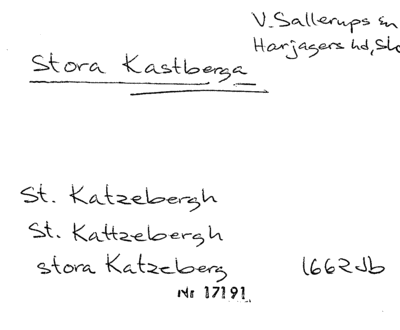 V. Sallerups sn
Harjagers hd, Sk
Stora Kastberga
St. Katzebergh
St. Kattzebergh
stora Katzeberg 1662 Jb
Nr 17191